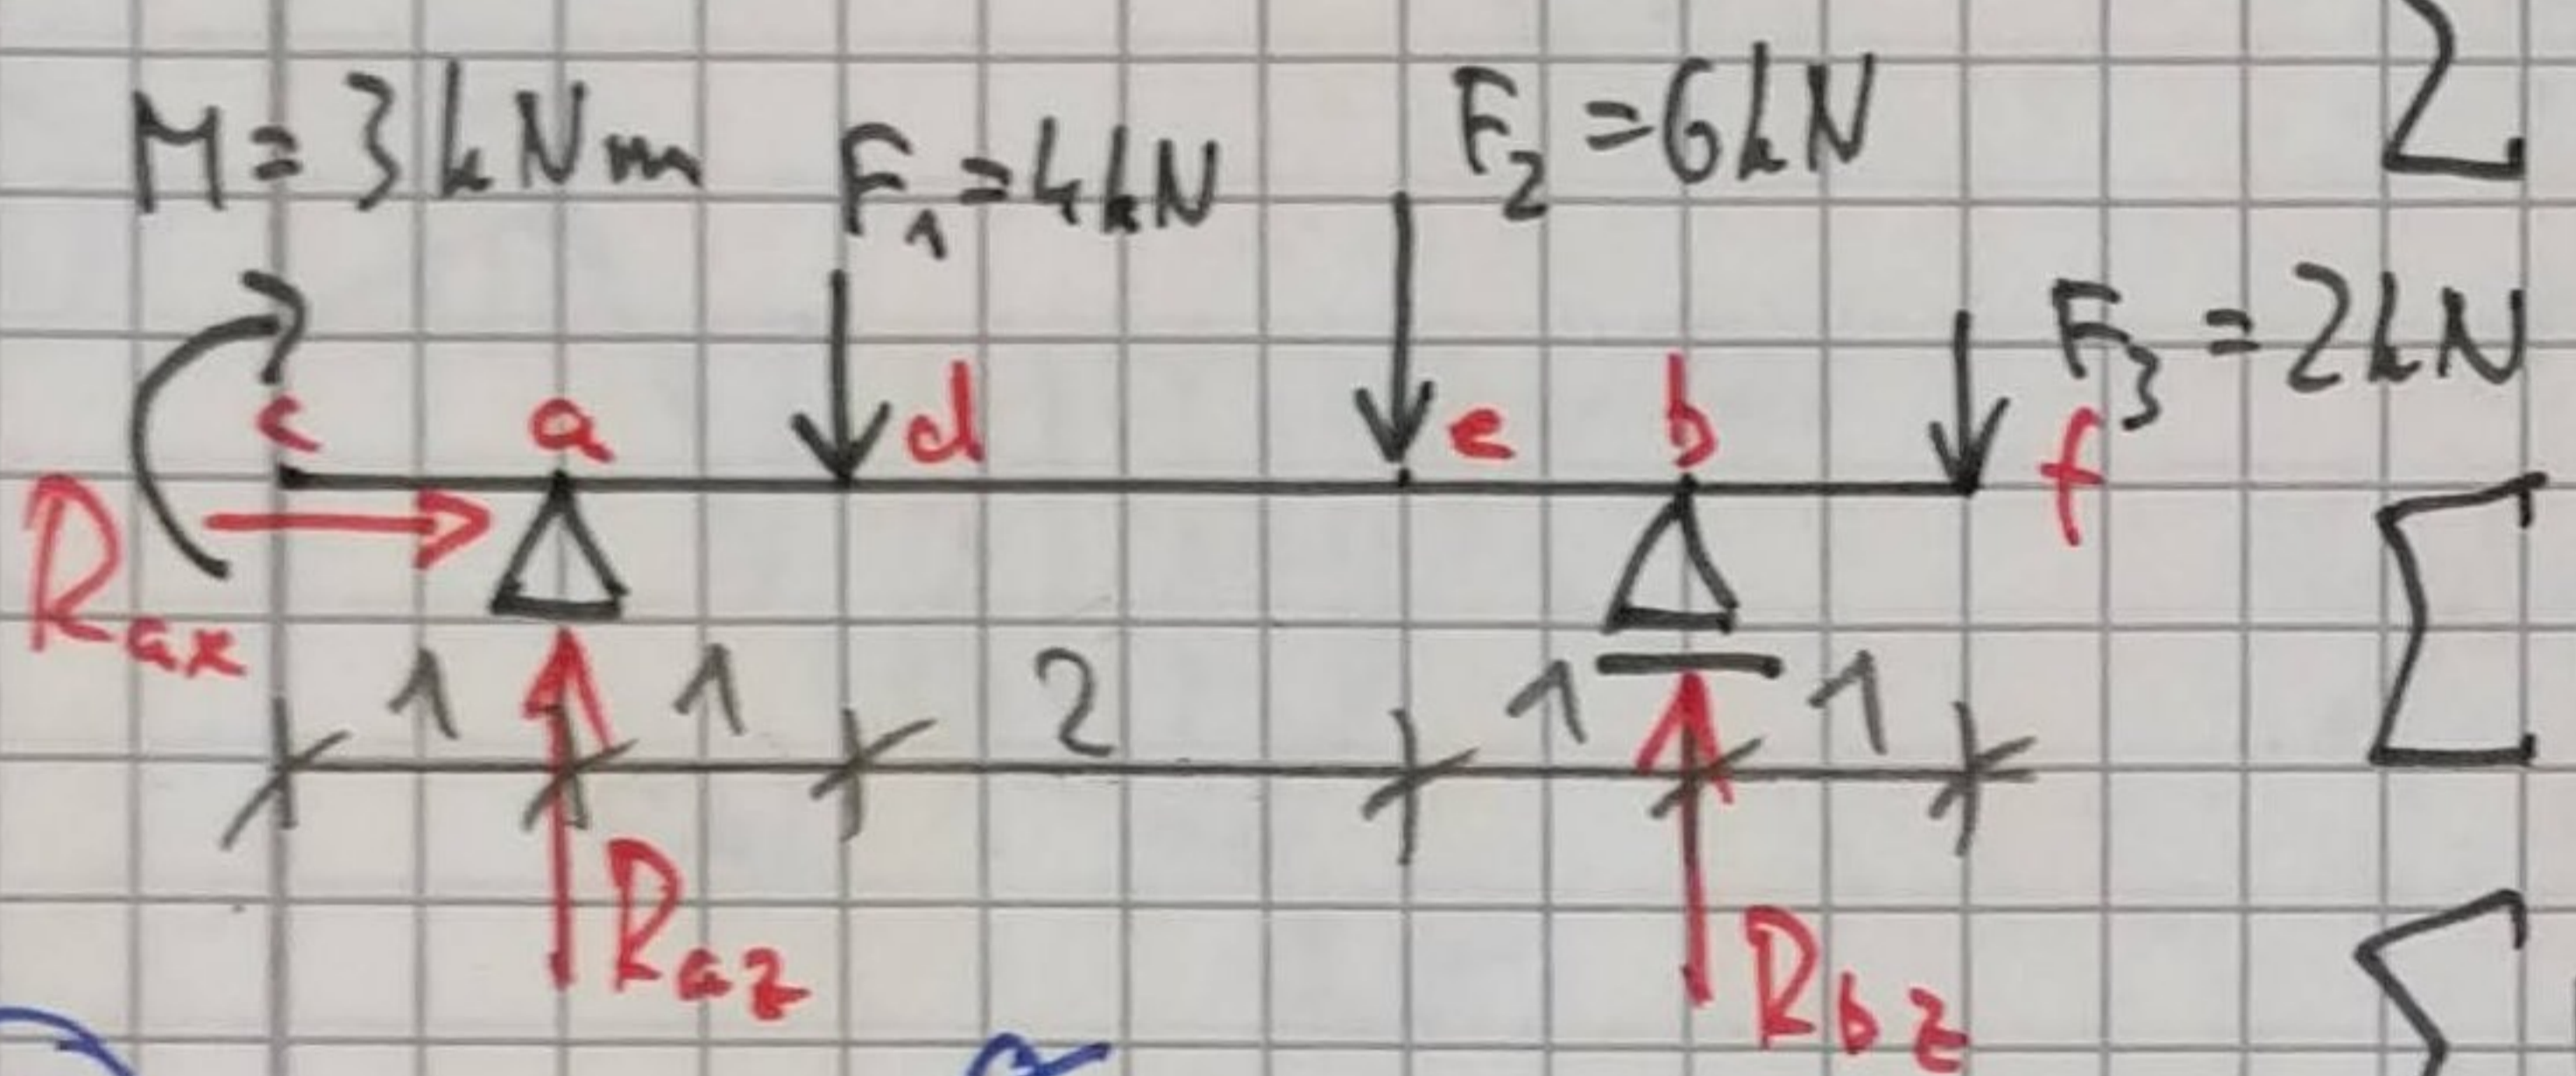 M = 3 kNm
F₁ = 4 kN
F₂ = 6 kN
F₃ = 2 kN
c a d e b f
Rax
1 1 2 1 1
Raz
Rbz